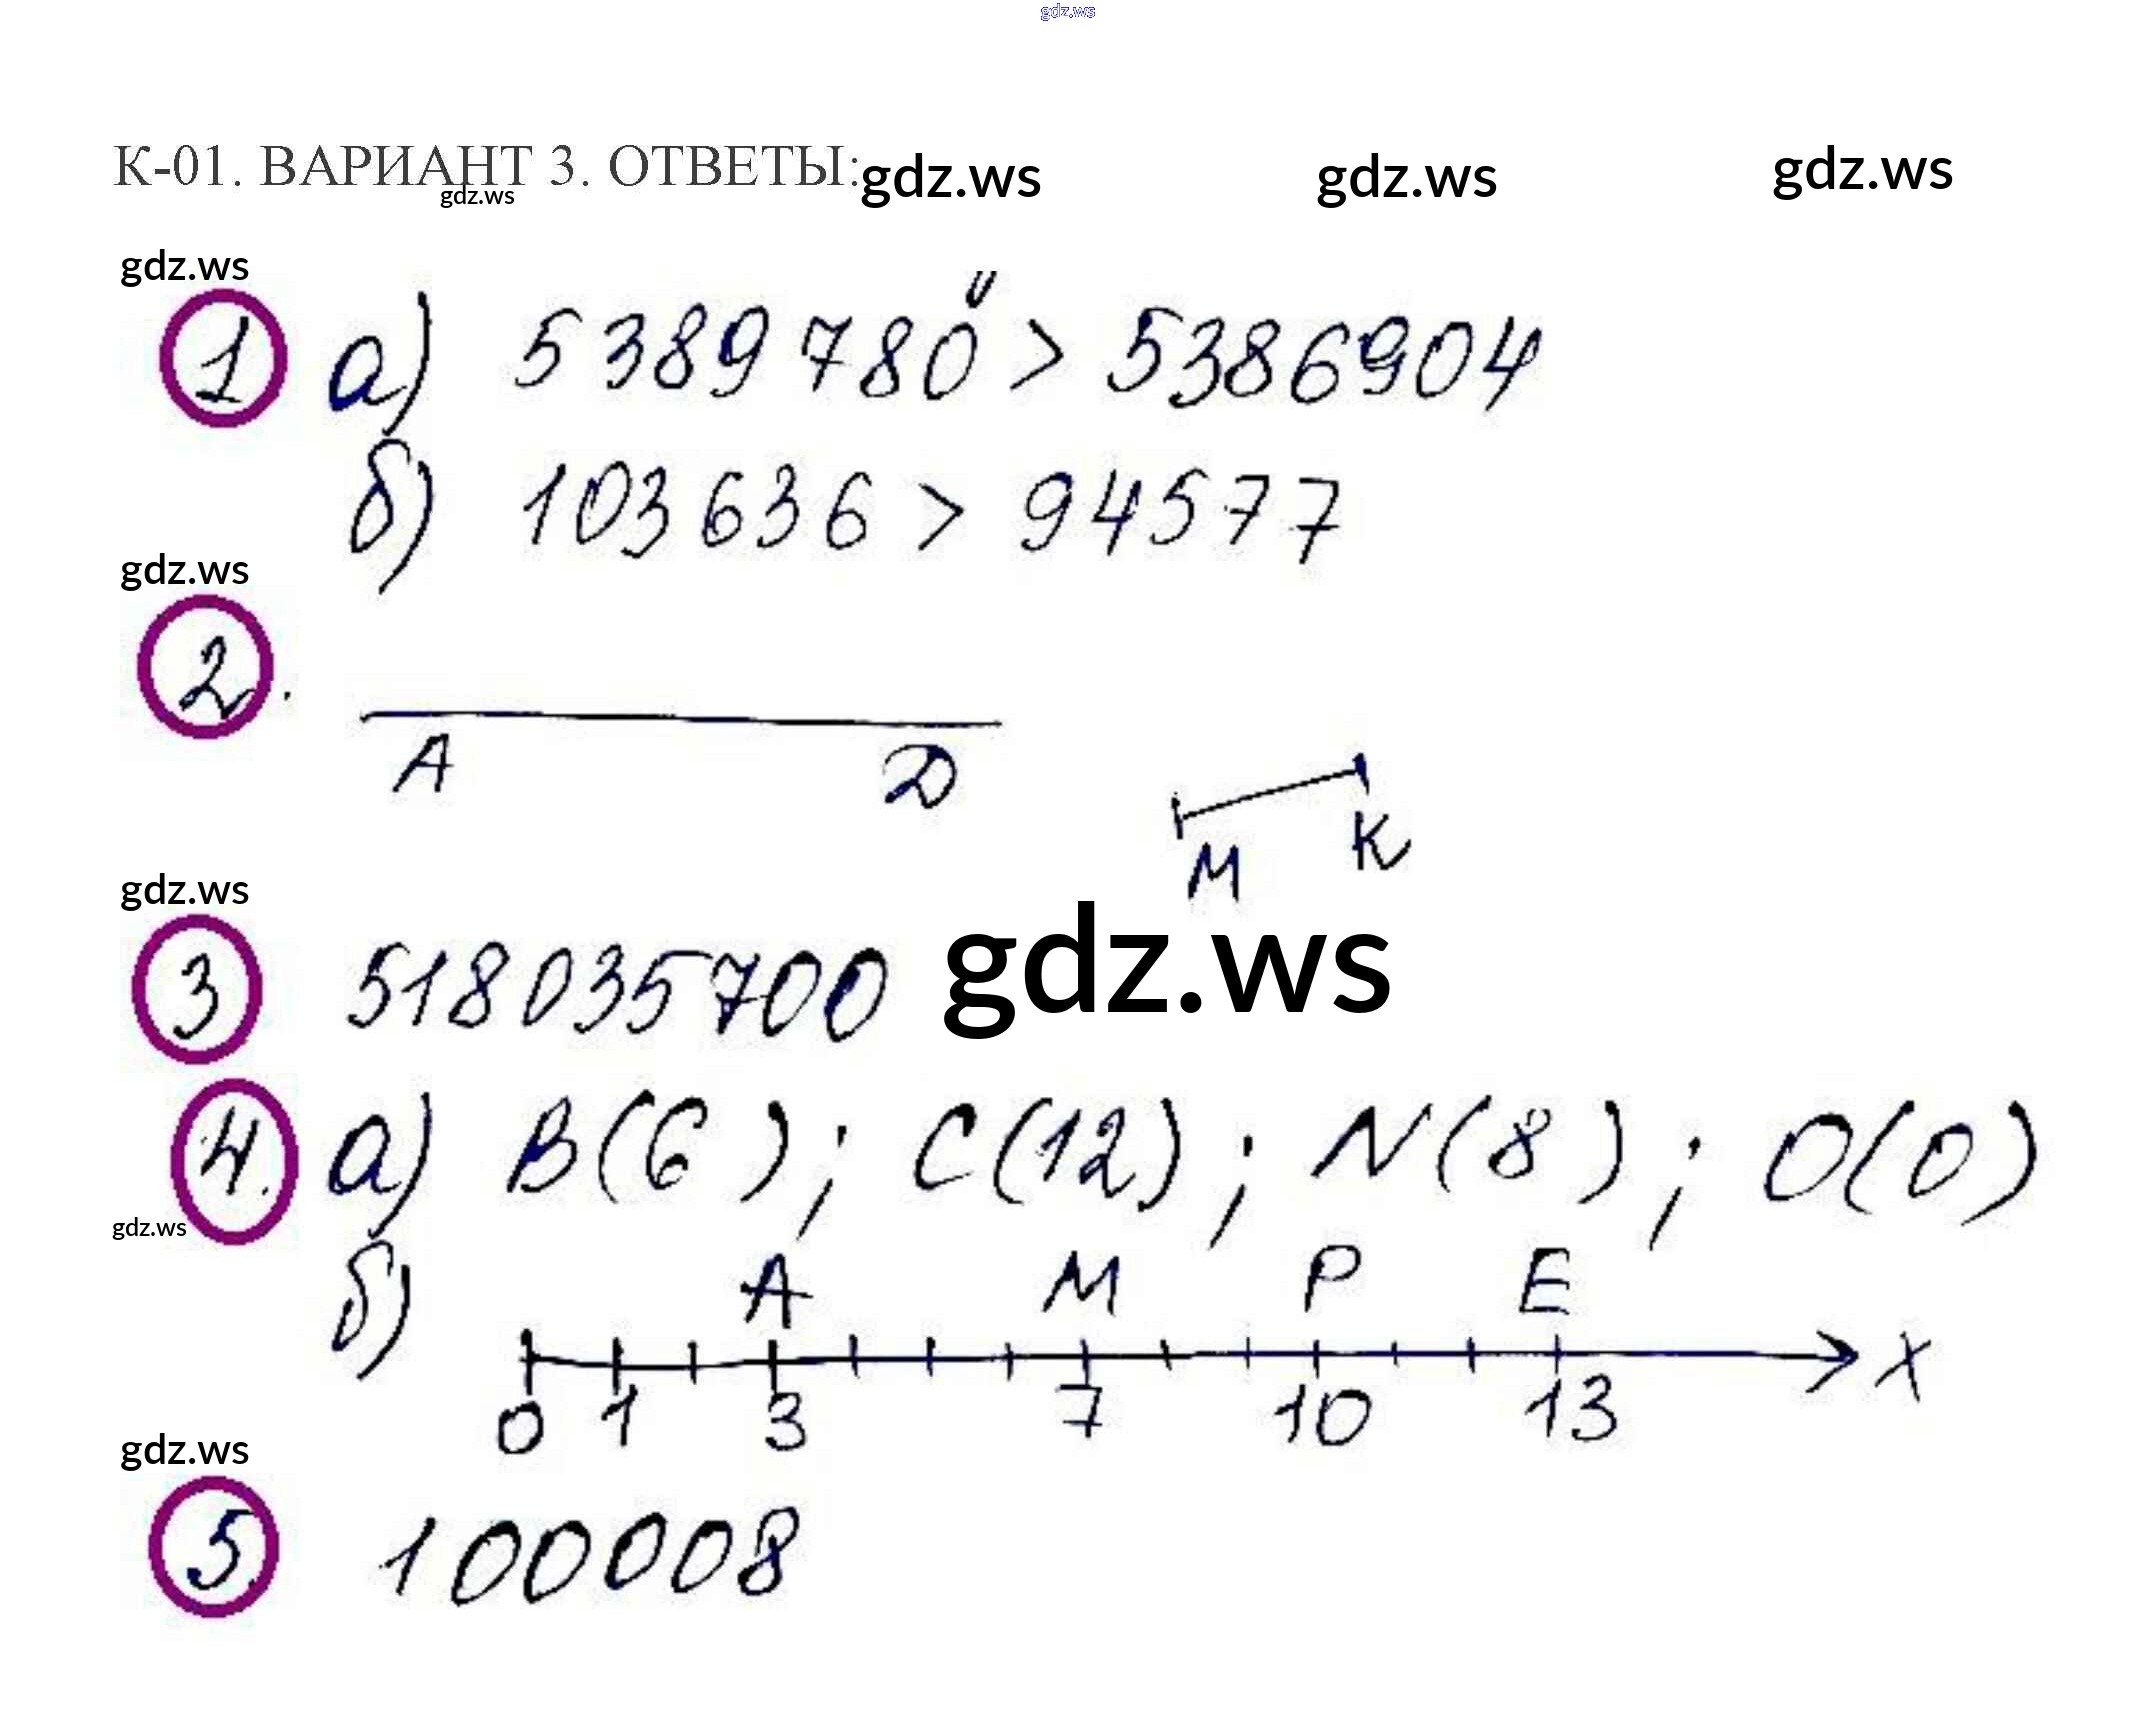 gdz.ws
К-01. ВАРИАНТ 3. ОТВЕТЫ: gdz.ws gdz.ws gdz.ws
gdz.ws
gdz.ws
1 а) 5389780 > 5386904
б) 103636 > 94577
gdz.ws
2.
А D
М К
gdz.ws
3 518035700 gdz.ws
4. а) B(6); C(12); N(8); O(0)
gdz.ws
б) A M P E
X
0 1 3 7 10 13
gdz.ws
5. 100008